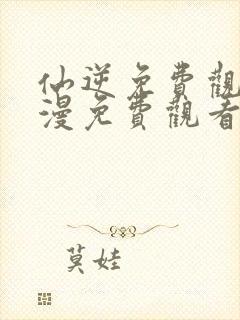 仙逆免費觀
漫免費觀看
莫娃